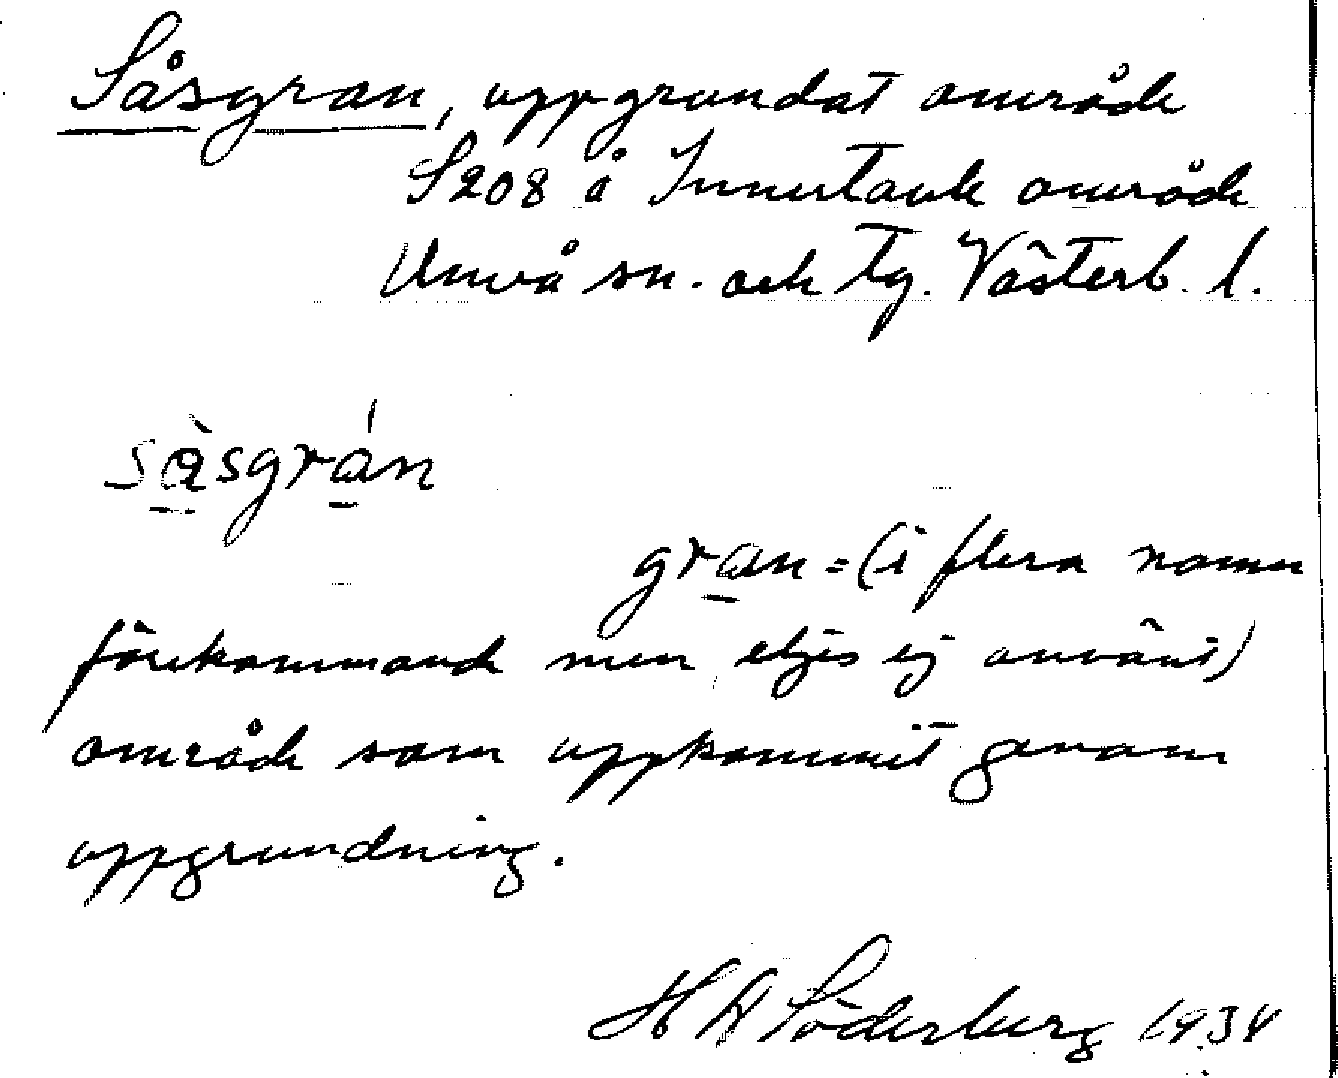 Såsgran, uppgrundat område
S208 å Innertavle område
Umeå sn. och tg. Västerb. l.
såsgrán
gran = (i flera namn
förekommande men eljes ej använt)
område som uppkommit genom
uppgrundning.
H A Söderberg 1934